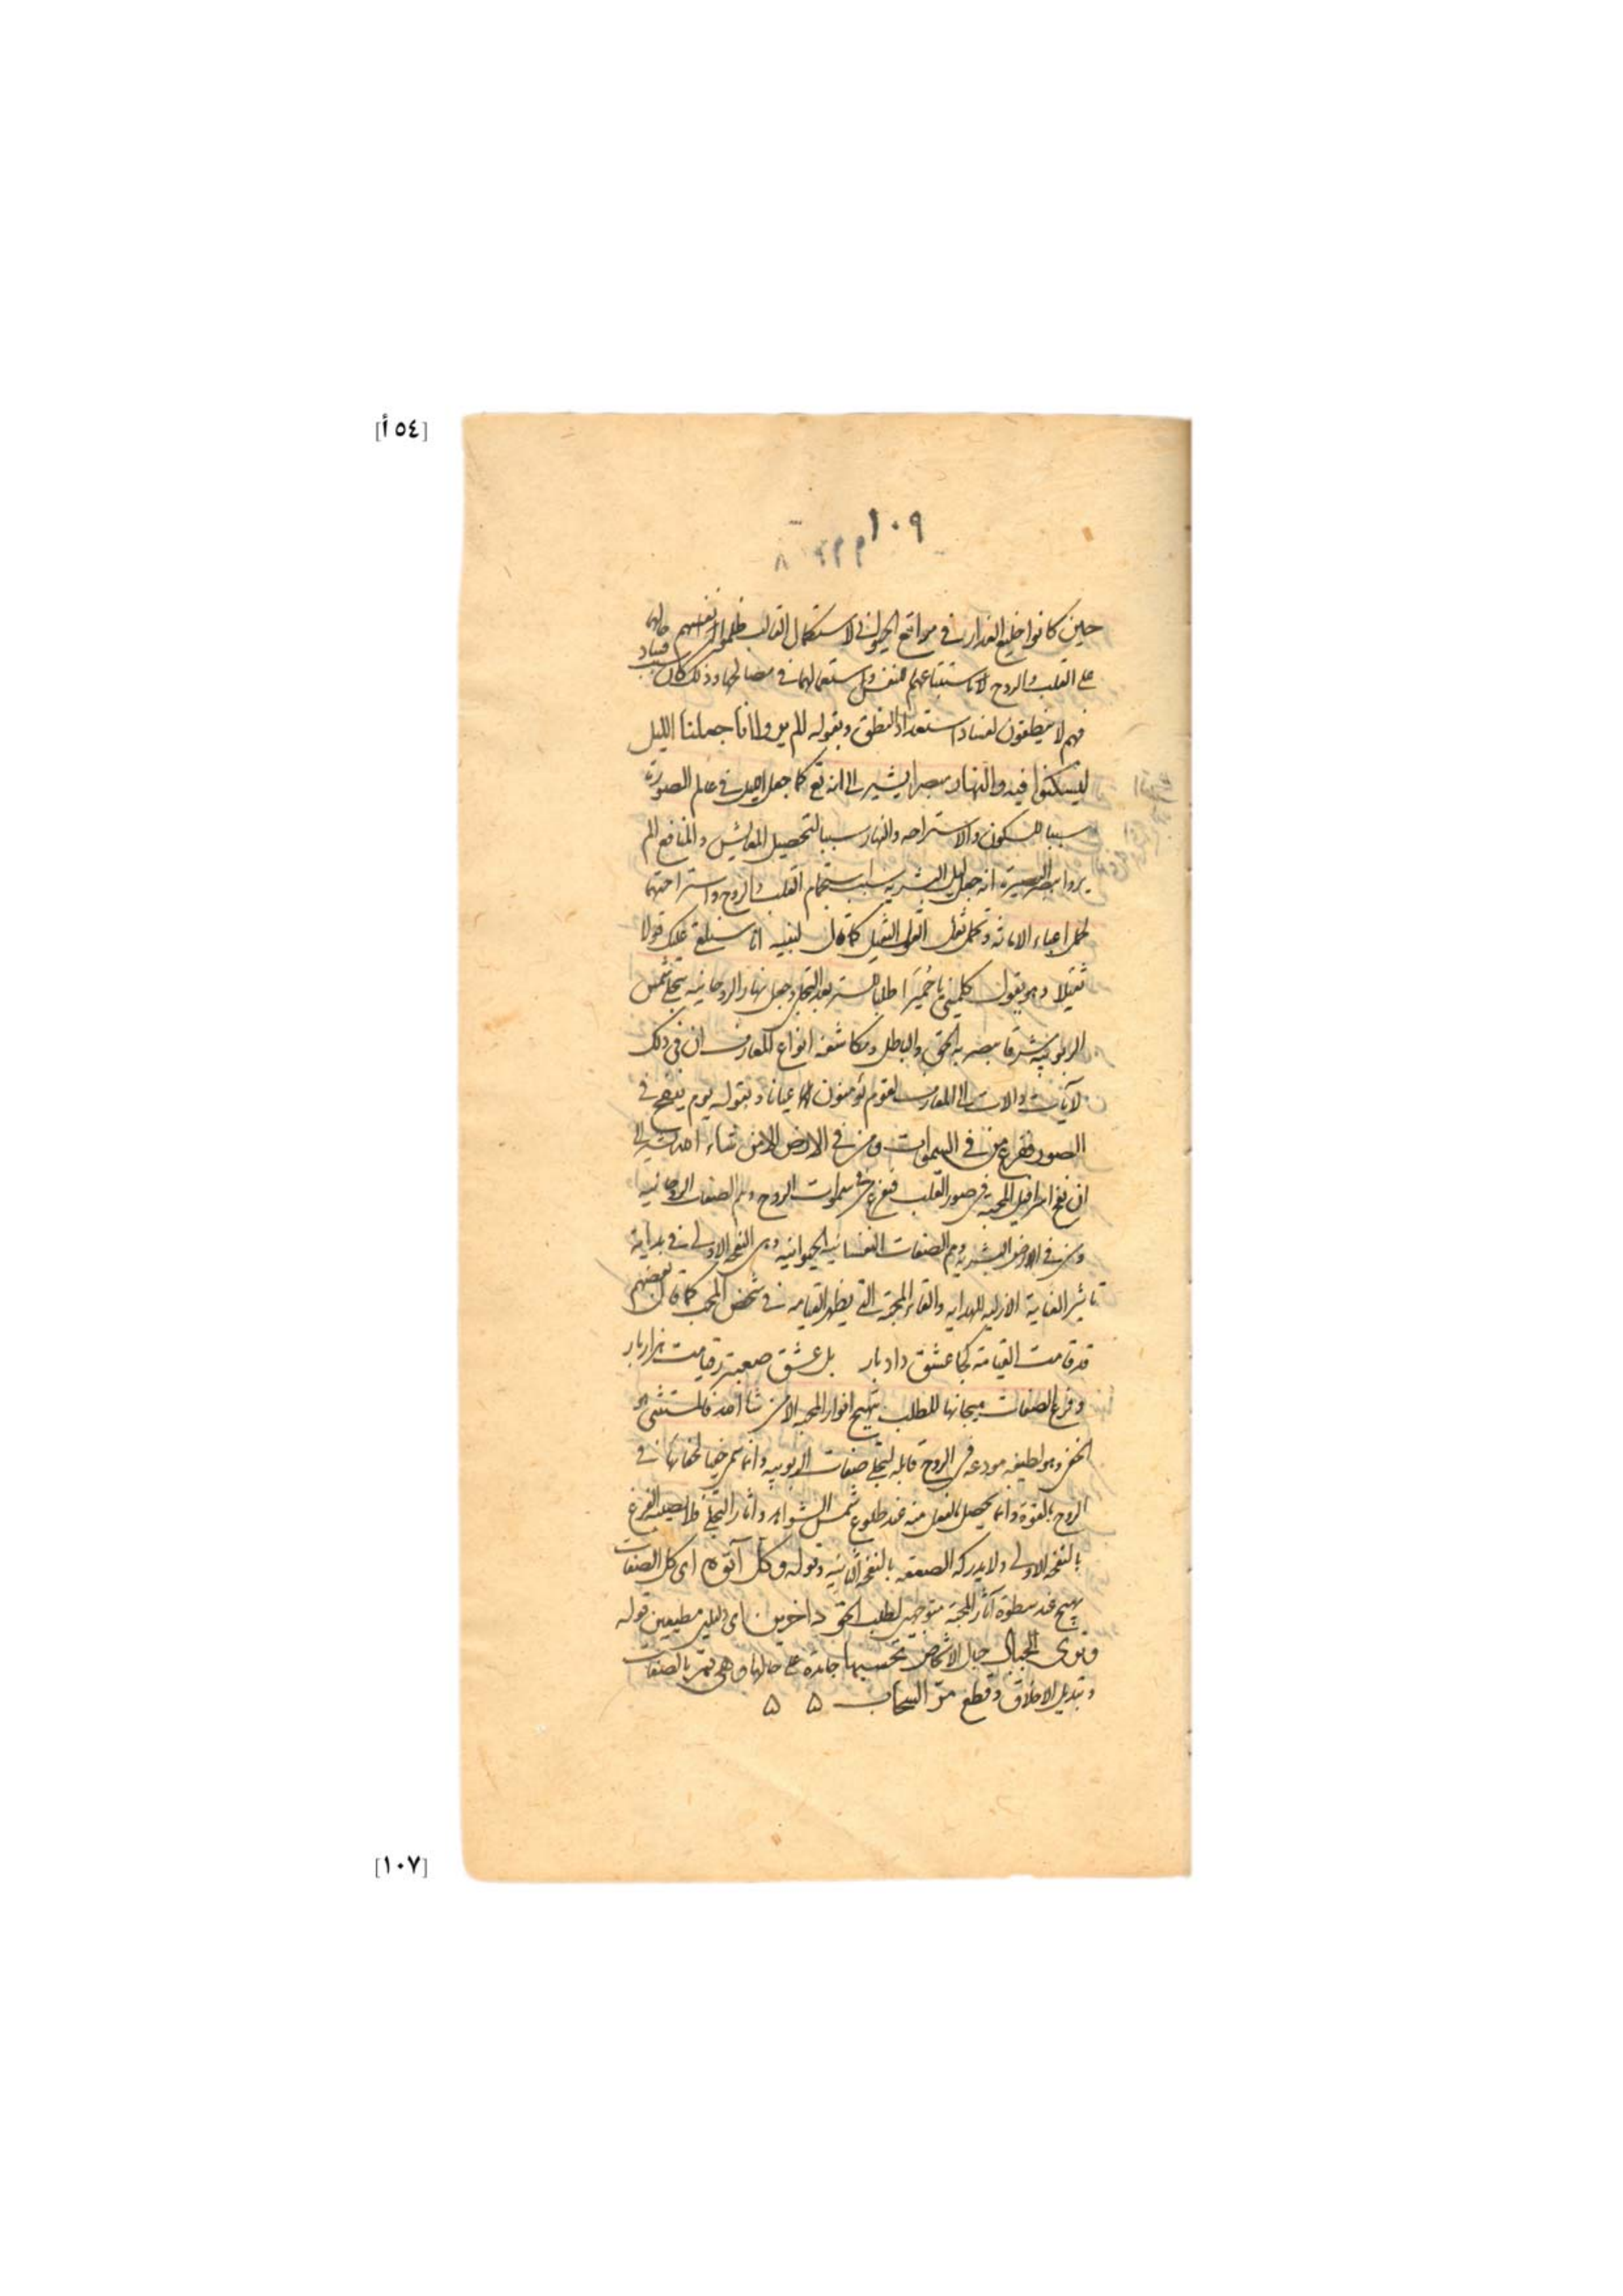 [٥٤ أ]
١٠٩
حين كانوا خليع العذار في مراتع الحيوانى لاستكمال القالب ظلموا انفسهم
على القلب والروح لاستتباعهما للنفس واستعمالهما في مصالحها وذلك كان
فهم لا ينطقون لفساد استعداد النطق وبقوله الم يروا انا جعلنا الليل
ليسكنوا فيه والنهار مبصرا يشير الى انه تع كما جعل الليل في عالم الصورة
سببا للسكون والاستراحه والنهار سببا لتحصيل المعايش والمنافع الم
يروا ببصر البصيرة انه جعل ليل البشريه سبب استجمام القلب والروح واستراحتهما
لحمل اعباء الامانه وتحمل ثقل القول الثقيل كما قال لنبيه انا سنلقي عليك قولا
ثقيلا وهو يقول كلميني يا حميرا طلبا للستر بعد التجلي وجعل نهار الروحانيه بتجلي شمس
الربوبيه مشرقا يبصر به الحق والباطل ومكاشفه انواع المعارف ان في ذلك
لآيات دالات الى المعارف لقوم يؤمنون بها عيانا وبقوله يوم ينفخ في
الصور ففزع من في السموات ومن في الارض الا من شاء الله يشير الى
ان نفخ اسرافيل المحبة في صور القلب ففزع من في سموات الروح وهم الصفات الروحانيه
ومن في الارض البشريه وهم الصفات النفسانيه الحيوانيه وهى النفخه الاولى في بداية
تاثير العناية الازليه للهدايه والقاء المحبة التي يظهر القيامه في شخص المحب كما قال بعضهم
قد قامت القيامة كجا عشق داد بار بل عشق صعبتر ز قيامت هزار بار
وفزع الصفات هيجانها للطلب بتهييج انوار المحبه الا من شا الله فالمستثنى هو
الخفى وهو لطيفه مودعه في الروح قابله لتجلي صفات الربوبيه وانما سمى خفيا لخفائها في
الروح بالقوة وانما يحصل بالفعل منه عند طلوع شمس الشواهد واثار التجلي فلا يصيبه الفزع
بالنفخه الاولى ولا يدركه الصعقه بالنفخه الثانيه وقوله وكل آتوه اى كل الصفات
تهيج عند سطوة آثار المحبة متوجهين لطلب الحق داخرين اى ذليلين مطيعين قوله
وترى الجبال جبال الاشخاص تحسبها جامدة على حالها وهى تمر بالصفات
وتبديل الاخلاق وقطع مر السحاب ۵ ۵
[١٠٧]